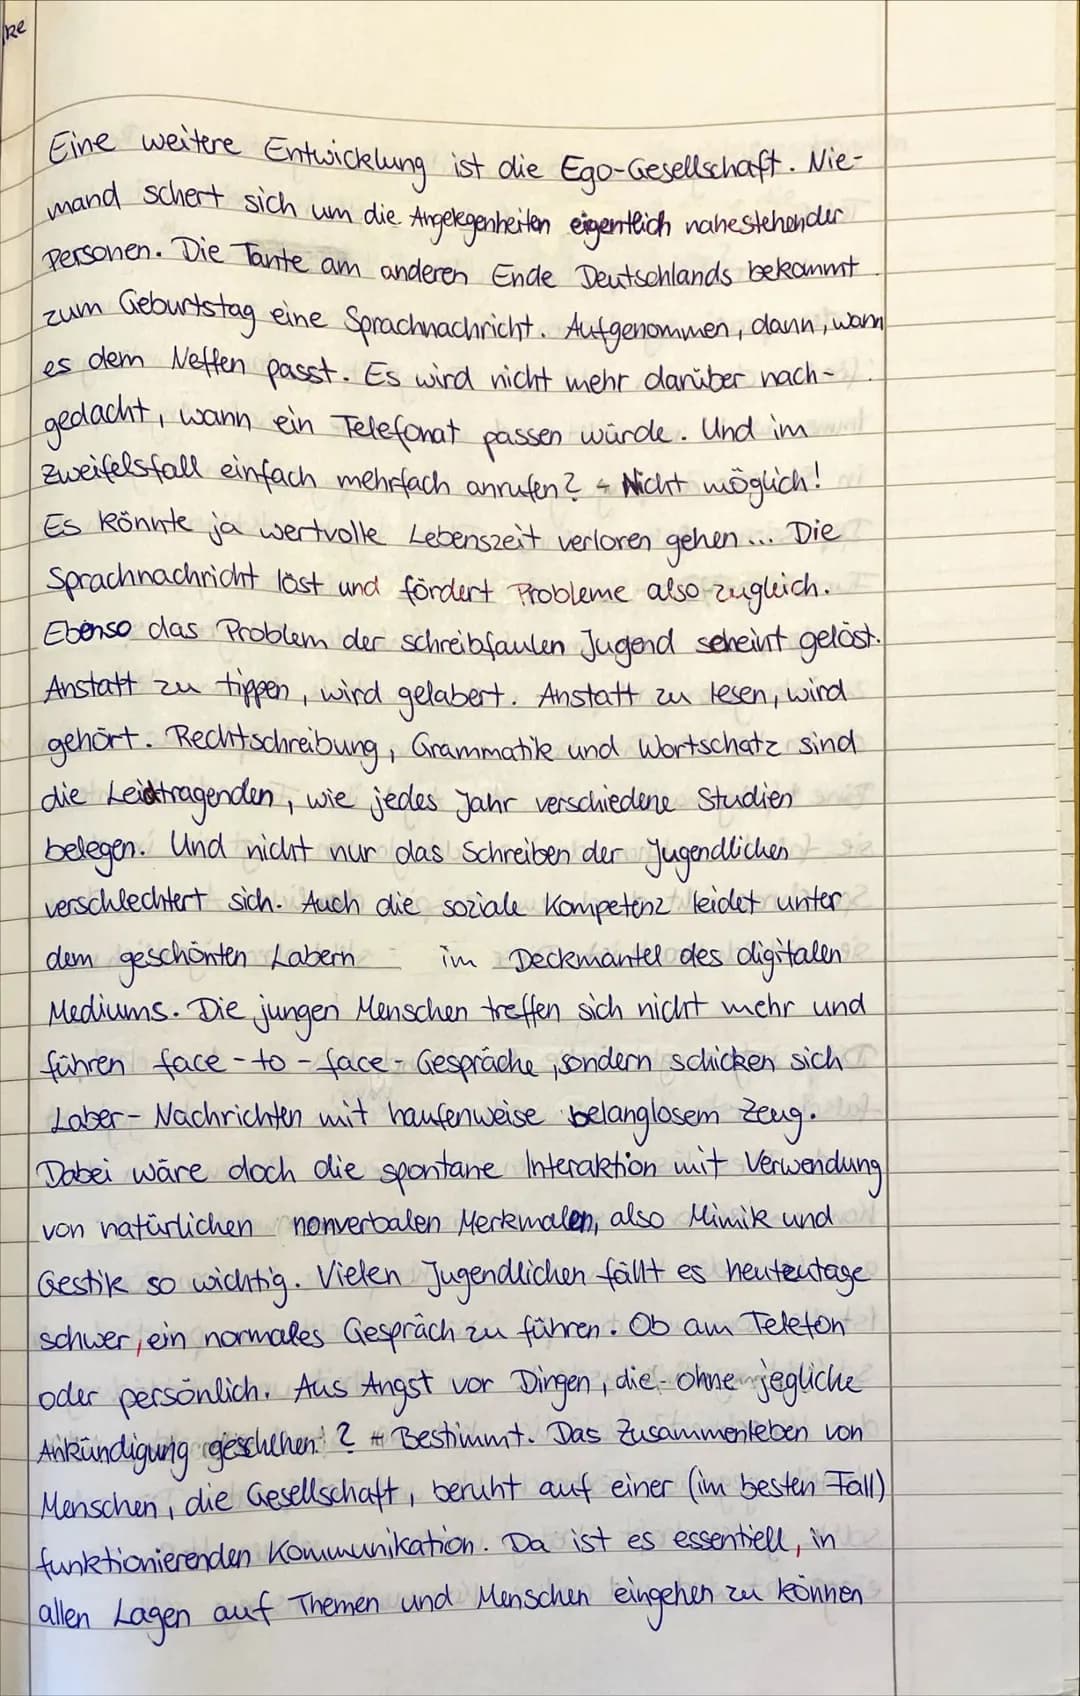 ke
Eine weitere Entwicklung ist die Ego-Gesellschaft. Nie-
mand schert sich um die Angelegenheiten eigentlich nahestehender
Personen. Die Tante am anderen Ende Deutschlands bekommt
zum Geburtstag eine Sprachnachricht. Aufgenommen, dann, wann
es dem Neffen passt. Es wird nicht mehr darüber nach-
gedacht, wann ein Telefonat passen würde. Und im
Zweifelsfall einfach mehrfach anrufen? - Nicht möglich!
Es könnte ja wertvolle Lebenszeit verloren gehen... Die
Sprachnachricht löst und fördert Probleme also zugleich.
Ebenso das Problem der schreibfaulen Jugend scheint gelöst.
Anstatt zu tippen, wird gelabert. Anstatt zu lesen, wird
gehört. Rechtschreibung, Grammatik und Wortschatz sind
die Leidtragenden, wie jedes Jahr verschiedene Studien
belegen. Und nicht nur das Schreiben der Jugendlichen
verschlechtert sich. Auch die soziale Kompetenz leidet unter
dem geschönten Labern im Deckmantel des digitalen
Mediums. Die jungen Menschen treffen sich nicht mehr und
führen face-to-face-Gespräche, sondern schicken sich
Laber-Nachrichten mit haufenweise belanglosem Zeug.
Dabei wäre doch die spontane Interaktion mit Verwendung
von natürlichen nonverbalen Merkmalen, also Mimik und
Gestik so wichtig. Vielen Jugendlichen fällt es heutzutage
schwer, ein normales Gespräch zu führen. Ob am Telefon
oder persönlich. Aus Angst vor Dingen, die ohne jegliche
Ankündigung geschehen? - Bestimmt. Das Zusammenleben von
Menschen, die Gesellschaft, beruht auf einer (im besten Fall)
funktionierenden Kommunikation. Da ist es essentiell, in
allen Lagen auf Themen und Menschen eingehen zu können